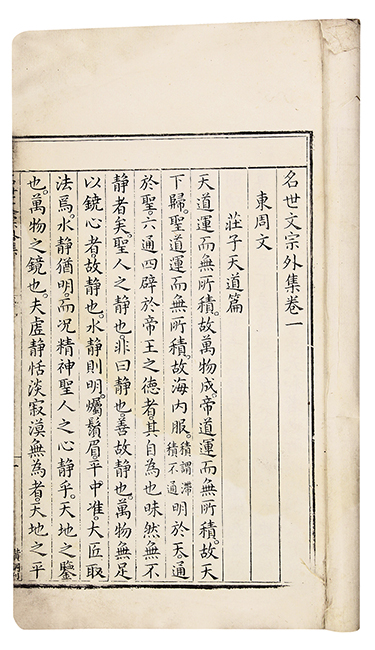 名世文宗外集卷一
東周文
莊子天道篇
天道運而無所積。故萬物成。帝道運而無所積。故天
下歸。聖道運而無所積。故海内服。積謂滯積不通明於天通
於聖。六通四辟於帝王之德者。其自為也昧然無不
静者矣。聖人之静也。非曰静也。善故静也。萬物無足
以鐃心者。故静也。水静則明。燭鬚眉平中准。大匠取
法焉。水静猶明。而况精神聖人之心静乎。天地之鑒
也。萬物之鏡也。夫虛静恬淡寂漠無為者。天地之平